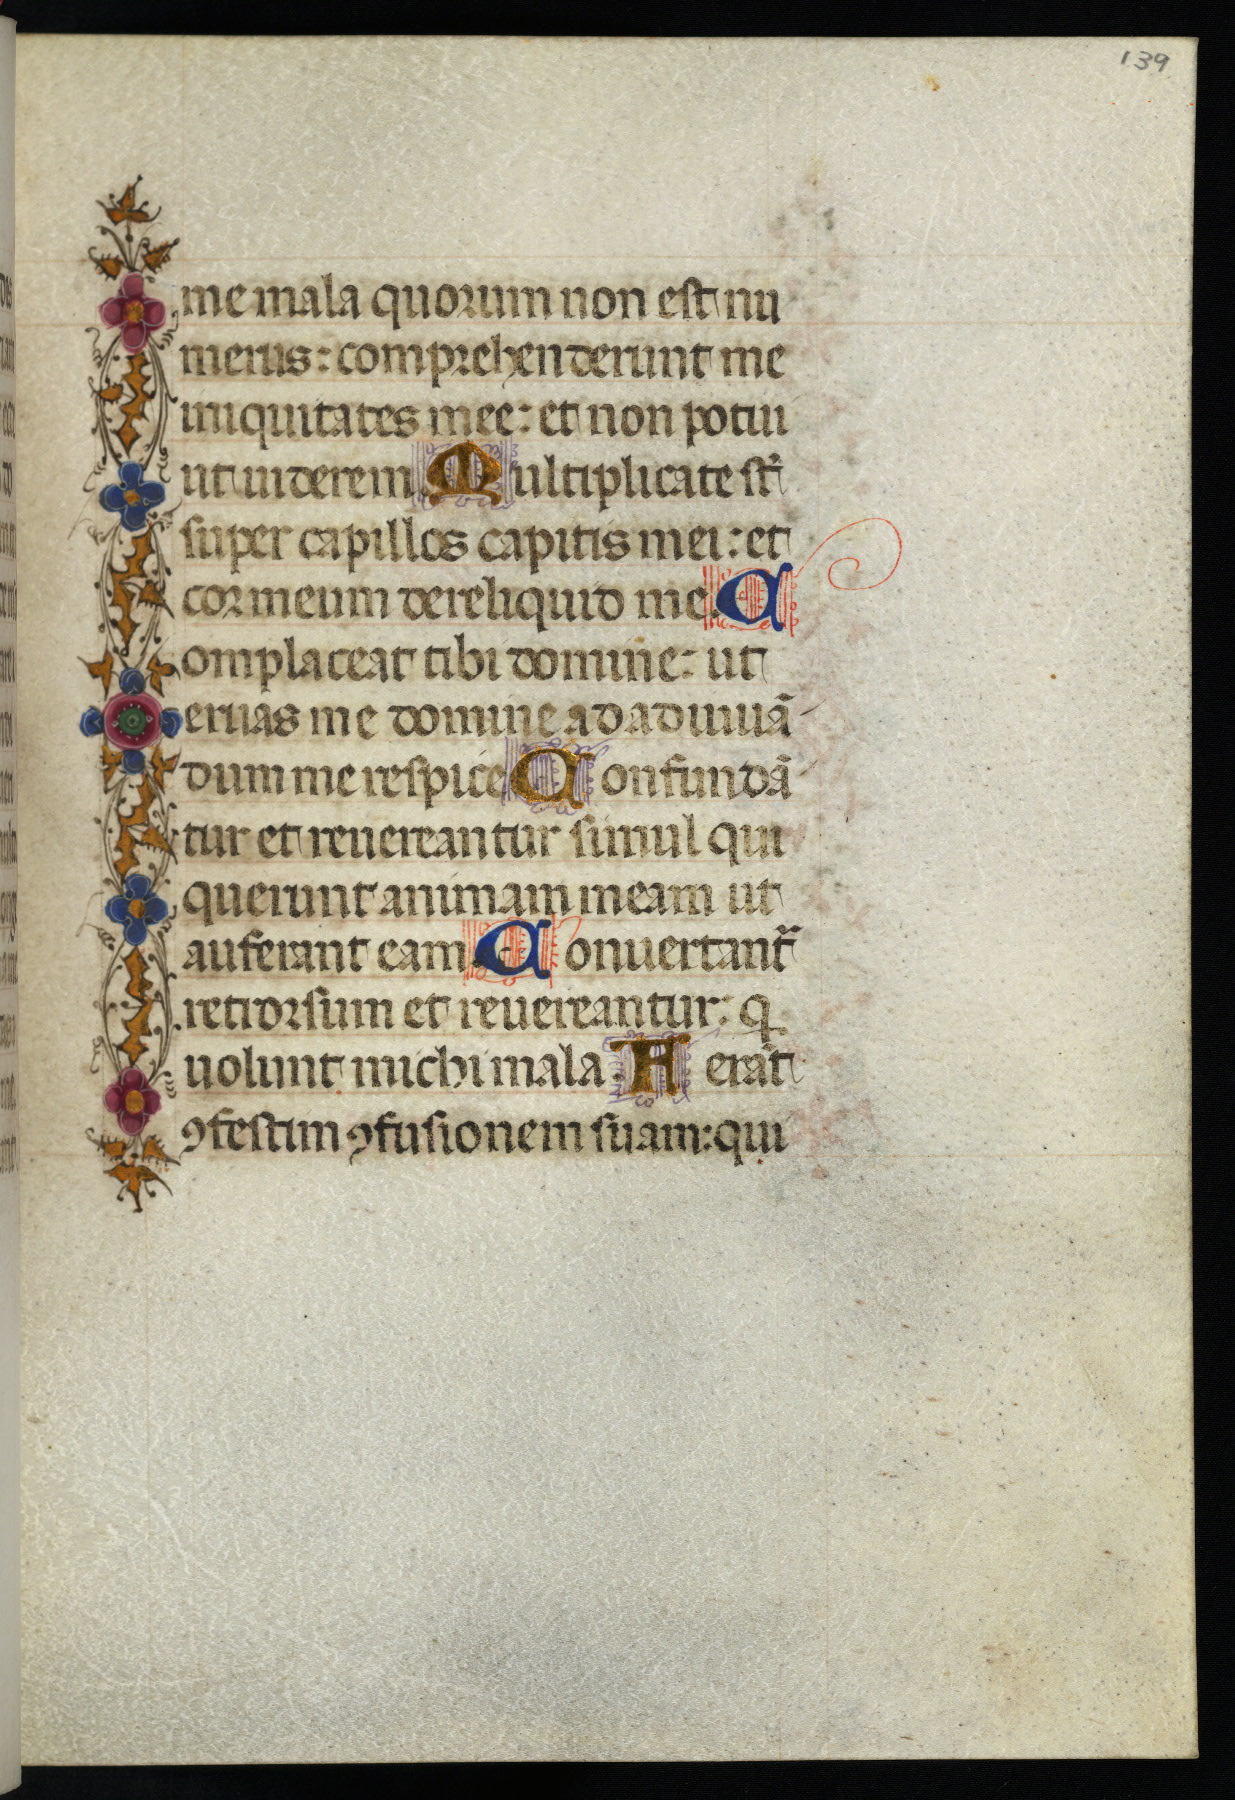 139
me mala quorum non est nu
merus: comprehenderunt me
iniquitates mee: et non potui
ut uiderem. Multiplicate st̃
super capillos capitis mei: et
cor meum dereliquid me. C
omplaceat tibi domine: ut
eruas me domine ad adiuuã
dum me respice. Confundã
tur et reuereantur simul qui
querunt animam meam ut
auferant eam. Conuertant᷑
retrorsum et reuereantur: q̃
uolunt michi mala. Ferãt
ꝯfestim ꝯfusionem suam: qui